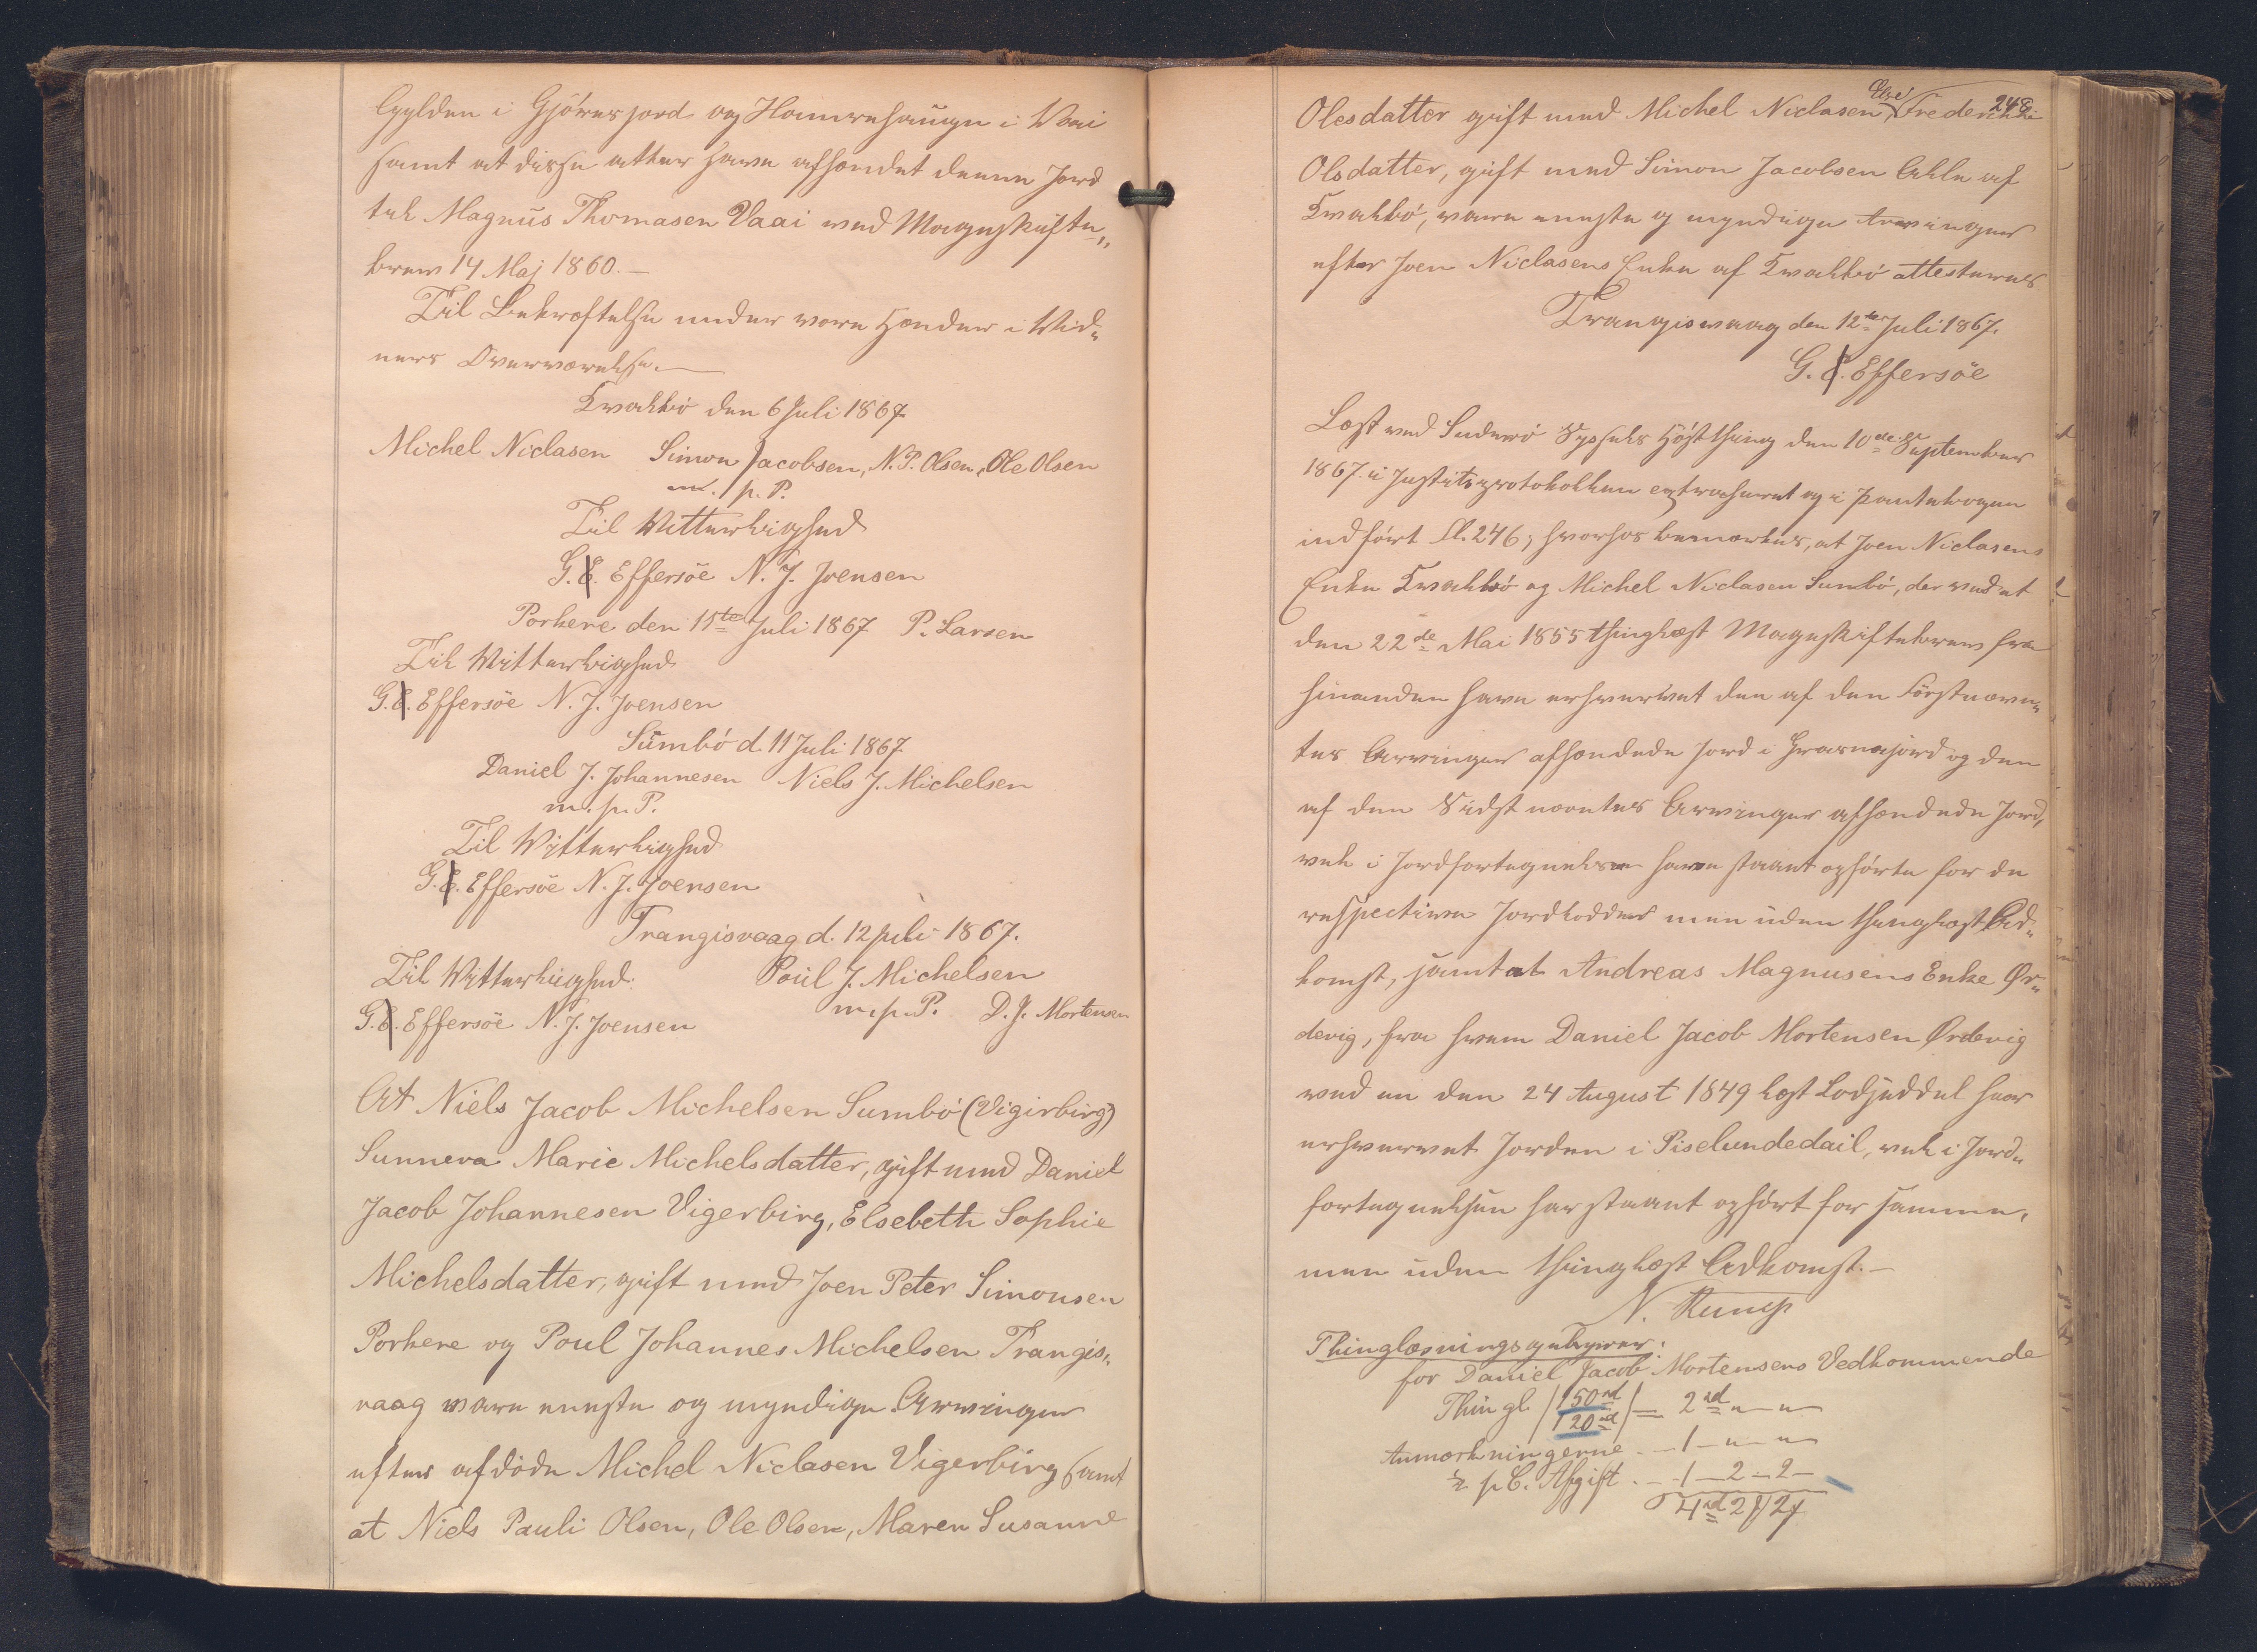 Gylden i Gjöresjord og Hamrehaugen i Vaai
samt at disse atter have afhændet denne Jord
til Magnus Thomasen Vaai ved Mageskifte„
brev 14 Maj 1860. —
Til Bekræftelse under vore Hænder i Vid„
ners Overværelse. —
Kvalbö den 6 Juli 1867
Michel Niclasen Simon Jacobsen, N. P. Olsen, Ole Olsen
m. p. P.
Til Vitterlighed
G. E. Effersöe N. J. Joensen
Porkere den 15te Juli 1867 P. Larsen
Til Vitterlighed
G. E. Effersöe N. J. Joensen
Sumbö d. 11 Juli 1867
Daniel J. Johannesen Niels J. Michelsen
m. p. P.
Til Vitterlighed
G. E. Effersöe N. J. Joensen
Trangisvaag d. 12 Juli 1867.
Til Vitterlighed: Poul J. Michelsen
G. E. Effersöe N. J. Joensen m. p. P. D. J. Mortensen
At Niels Jacob Michelsen Sumbö (Vigirbirg)
Sunneva Marie Michelsdatter, gift med Daniel
Jacob Johannesen Vigerbirg, Elsebeth Sophie
Michelsdatter, gift med Joen Peter Simonsen
Porkere og Poul Johannes Michelsen Trangis„
vaag vare eneste og myndige Arvinger
efter afdöde Michel Niclasen Vigerbirg samt
at Niels Pauli Olsen, Ole Olsen, Maren Susanne
248
Olesdatter gift med Michel Niclasen, Else Frederikke
Olsdatter, gift med Simon Jacobsen Alle af
Kvalbö, vare eneste og myndige Arvinger
efter Joen Niclasens Enke af Kvalbö attesteres
Trangisvaag den 12te Juli 1867.
G. E. Effersöe
Læst ved Suderö Syssels Höstthing den 10de September
1867. i Justitsprotokollen extraheret og i Pantebogen
indfört Fl. 246, hvorhos bemærkes, at Joen Niclasens
Enke Kvalbö og Michel Niclasen Sumbö, der ved et
den 22de Mai 1855 thinglæst Mageskiftebrev fra
hinanden have erhvervet den af den Förstnævn„
tes Arvinger afhændede Jord i Hrasnajord og den
af den Sidstnævntes Arvinger afhændede Jord,
vel i Jordfortegnelsen have staaet opförte for de
respective Jordlodder men uden thinglæst Ad„
komst, samt at Andreas Magnusens Enke Ør„
devig, fra hvem Daniel Jacob Mortensen Ørdevig
ved en den 24 August 1849 læst Lodseddel har
erhvervet Jorden i Piselundedail, vel i Jord„
fortegnelsen har staaet opfört for samme,
men uden thinglæst Adkomst. —
N. Rump
Thinglæsningsgebyrer:
for Daniel Jacob Mortensens Vedkommende
Thingl. (150rd / 120rd) = 2rd „ — „
Anmærkningerne — 1 — „ — „
½ p C. Afgift. — 1 — 2 — 2 —
4rd 2 ꝑ 2ꝭ